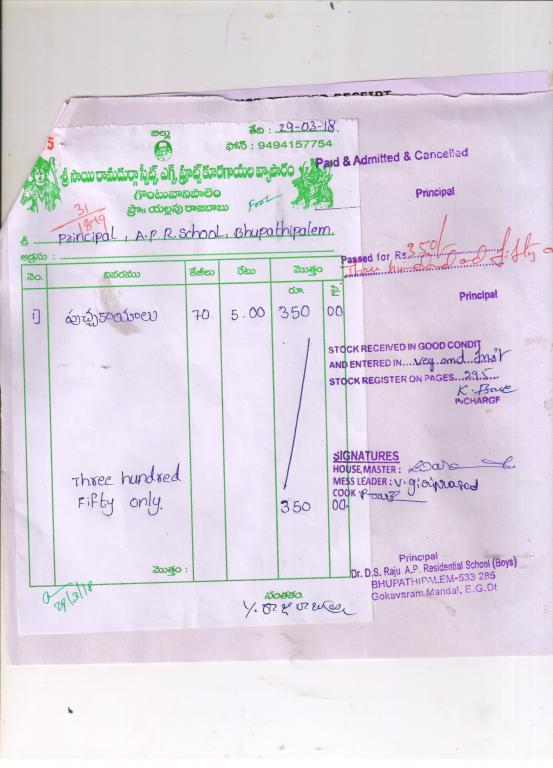 బిల్లు
తేది : 29-03-18.
ఫోన్ : 9494157754
శ్రీ సాయి రామదుర్గా స్వీట్స్, ఎగ్స్, ఫ్రూట్స్ కూరగాయల వ్యాపారం
గొంటువానిపాలెం
ప్రొ॥ యల్లపు రాజబాబు
31
18-19
శ్రీ Principal, A.P.R. School, Bhupathipalem.
అడ్రసు :
నెం. వివరము కేజీలు రేటు మొత్తం
రూ. పై.
1] పుచ్చకాయలు 70. 5.00 350 00
Three hundred
Fifty only. 350 00
మొత్తం :
29/3/18
సంతకం
Paid & Admitted & Cancelled
Principal
Passed for Rs. 350/
Three hundred and fifty
Principal
STOCK RECEIVED IN GOOD CONDIT
AND ENTERED IN....veg. and. Fruit
STOCK REGISTER ON PAGES...295...
INCHARGE
SIGNATURES
HOUSE, MASTER :
MESS LEADER : V. giriprasad
COOK
Principal
Dr. D.S. Raju A.P. Residential School (Boys)
BHUPATHIPALEM-533 285
Gokavaram Mandal, E.G.Dt